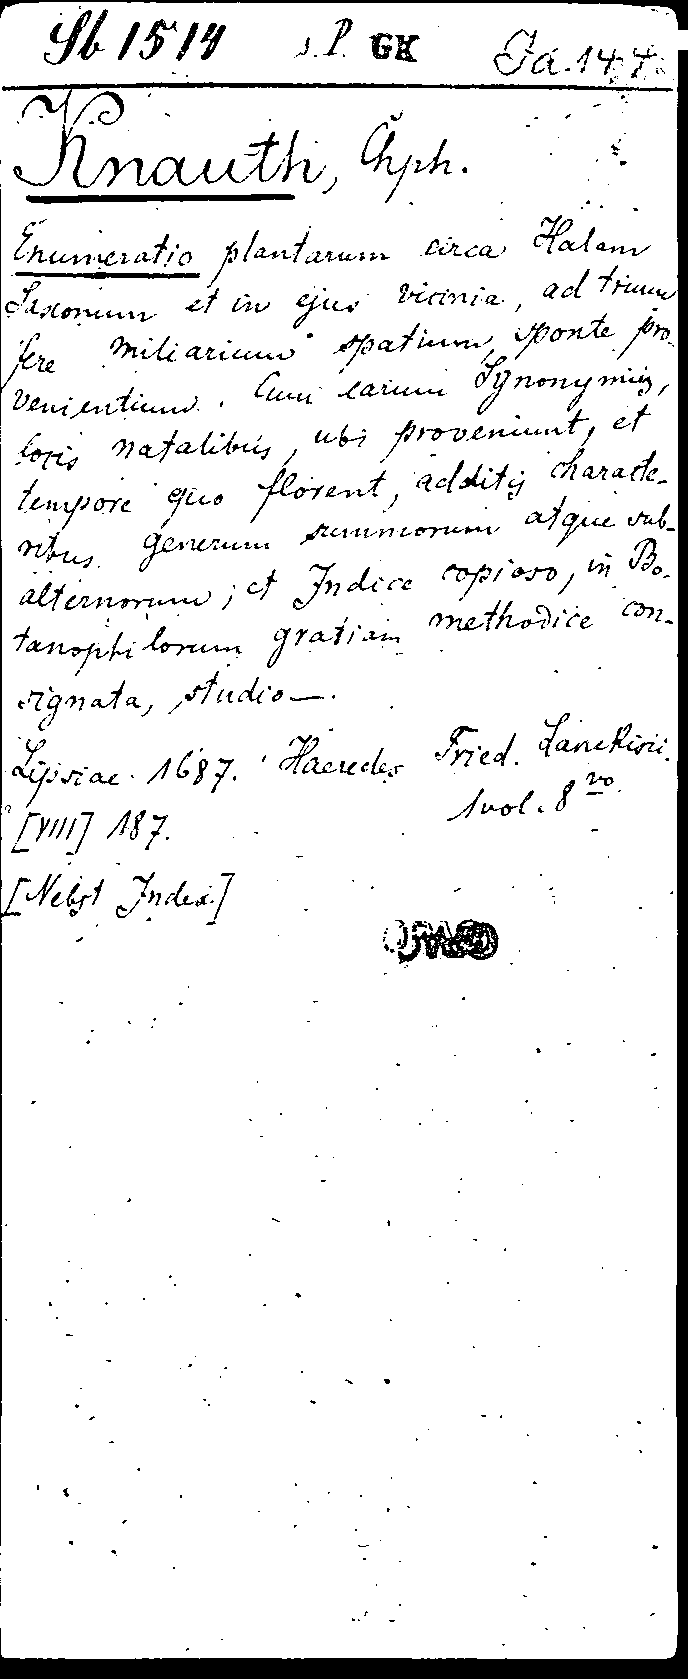 Sb 1514 s.P. GK Ja. 144.
Knauth, Chph.
Enumeratio plantarum circa Halam
Saxonum et in ejus vicinia, ad trium
fere miliarium spatium, sponte pro-
venientium. Cum earum Synonymis,
locis natalibus, ubi proveniunt, et
tempore quo florent, additis characte-
ribus generum summorum atque sub-
alternorum; et Indice copioso, in Bo-
tanophilorum gratiam methodice con-
signata, studio —.
Lipsiae 1687. Haeredes Fried. Lanckisii.
1 vol. 8vo.
[VIII] 187.
[Nebst Index]